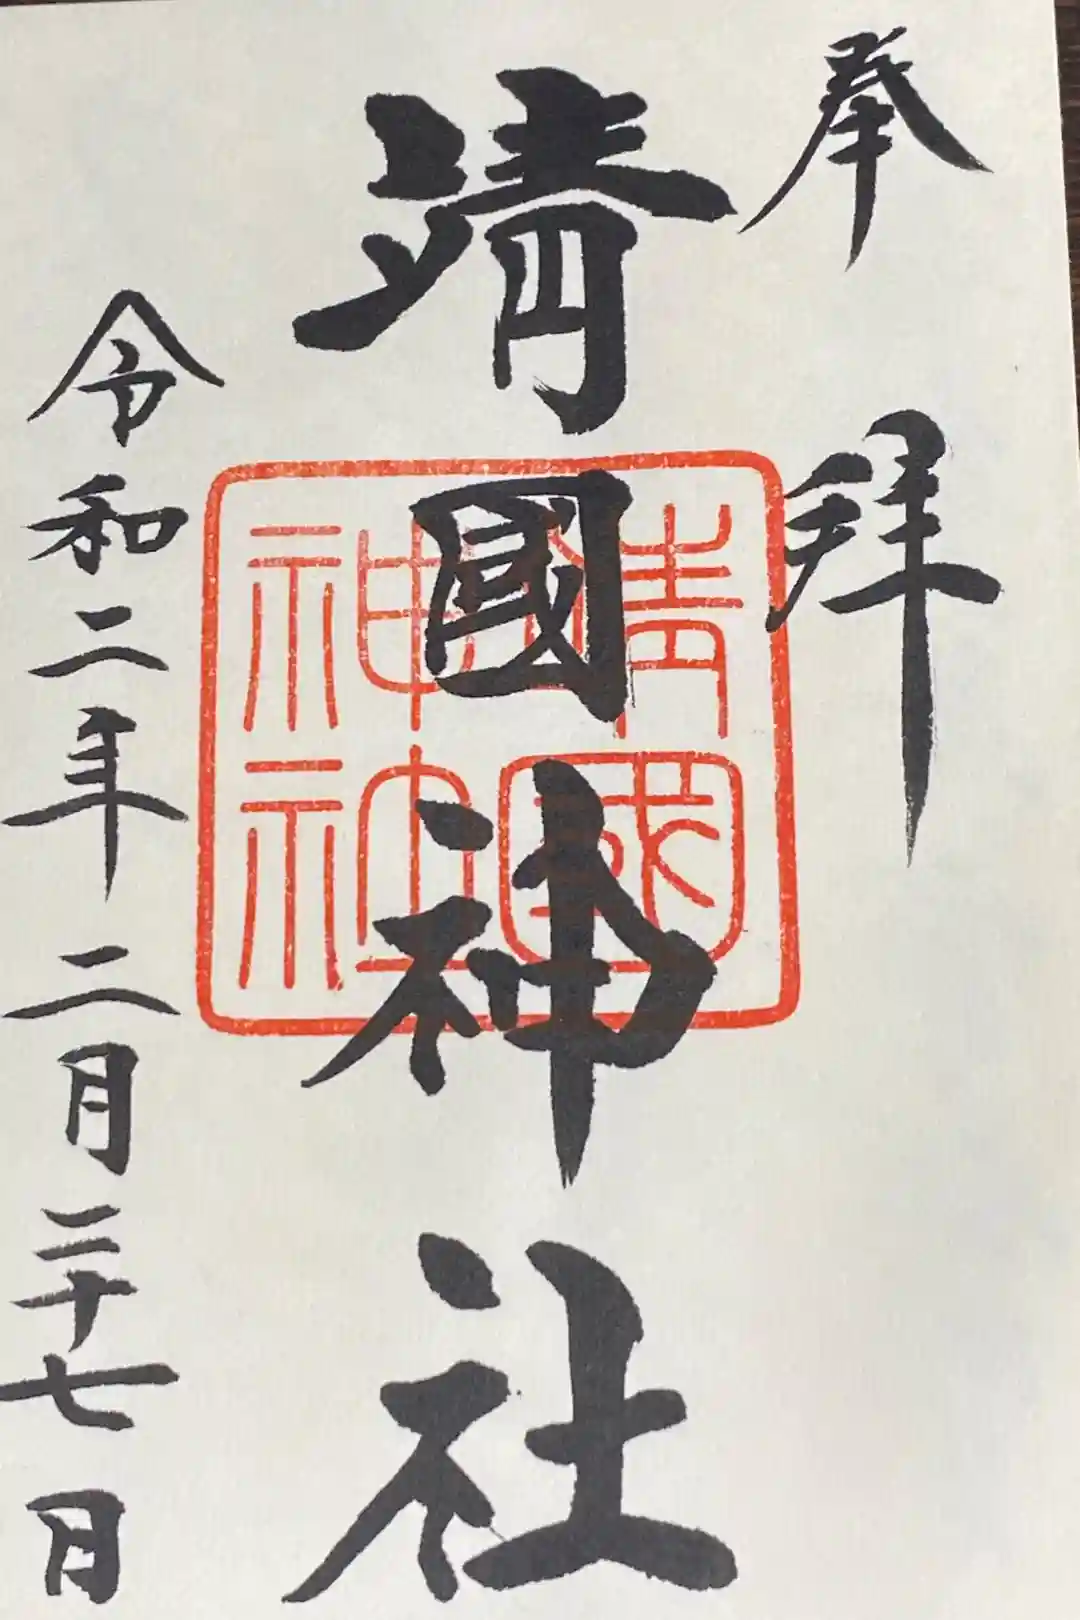 奉拝
靖國神社
靖國
神社
令和二年二月二十七日